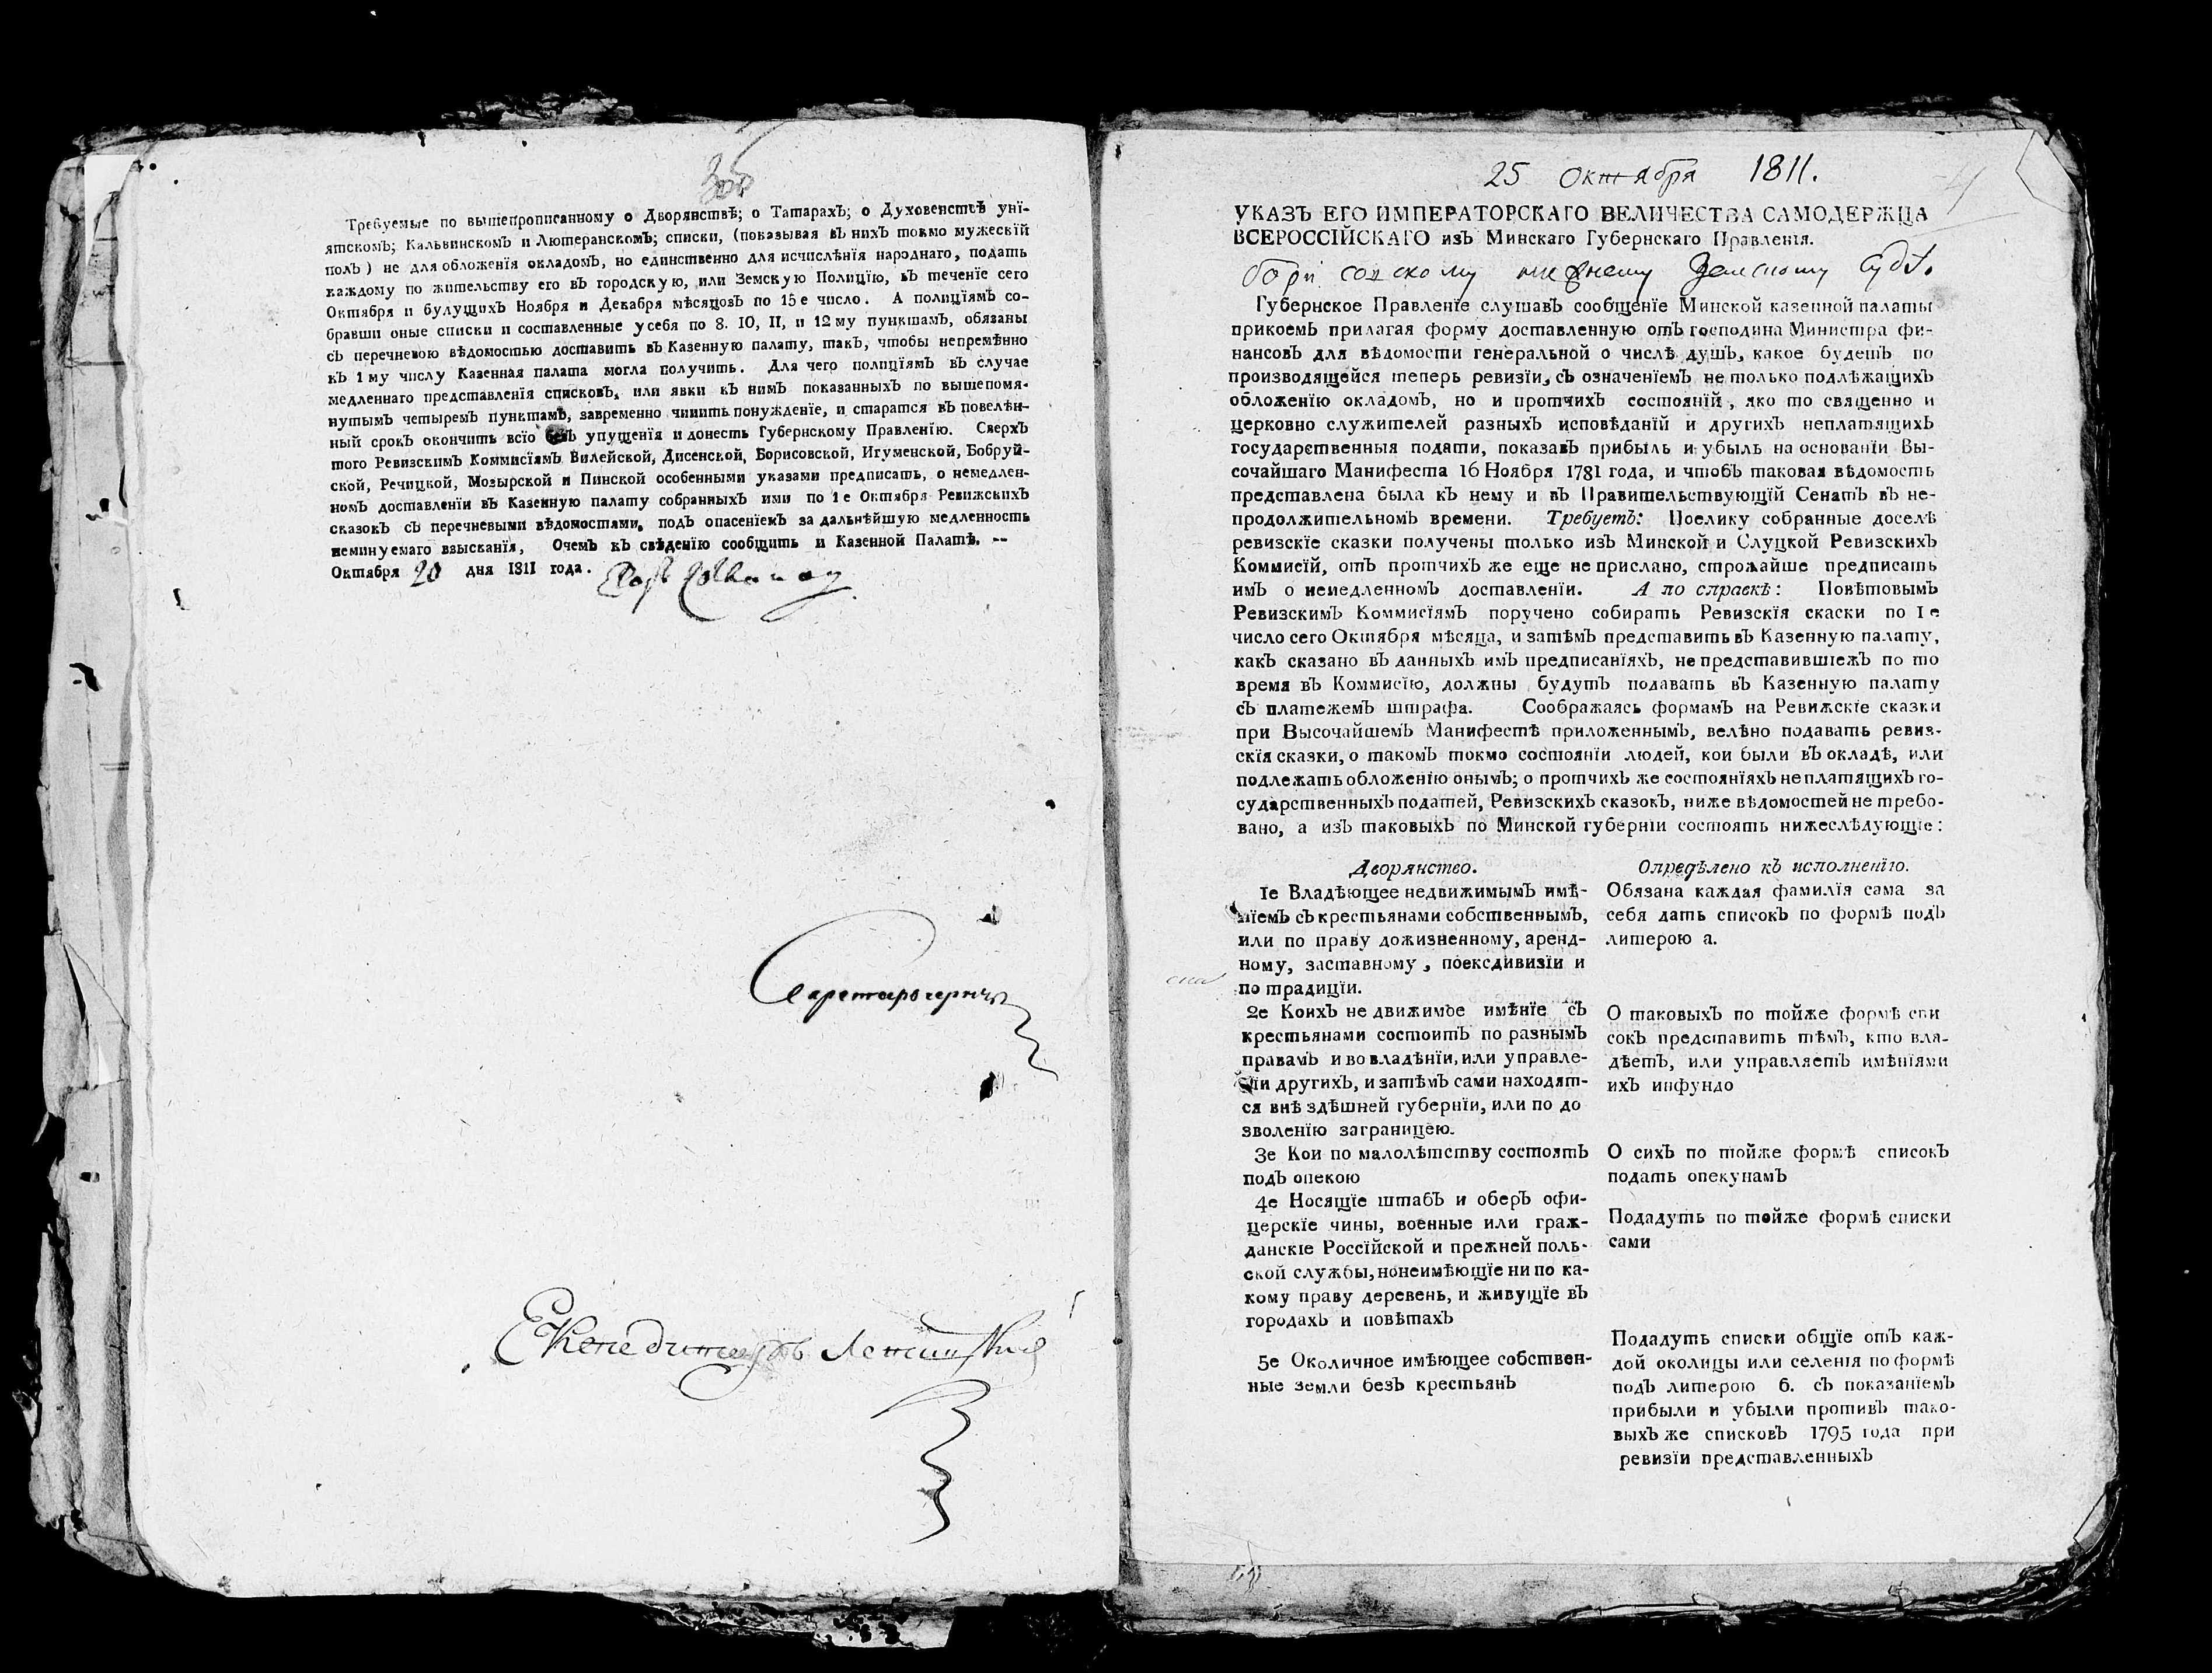 Требуемые по вышепрописанному о Дворянствѣ; о Татарахъ; о Духовенствѣ унї-
ятскомъ; Кальвинскомъ и Лютеранскомъ; списки, (показывая въ нихъ токмо мужескїй
полъ) не для обложенїя окладомъ, но единственно для исчислѣнїя народнаго, подать
каждому по жительству его въ городскую, или Земскую Полицїю, въ теченїе сего
Октября и будущихъ Ноября и Декабря мѣсяцовъ по 15е число. А полицїямъ со-
бравши оные списки и составленные усебя по 8. 10, 11, и 12му пунктамъ, обязаны
съ перечневою вѣдомостью доставить въ Казенную палату, такъ, чтобы непремѣнно
къ 1му числу Казенная палата могла получить. Для чего полицїямъ въ случае
медленнаго представленїя списковъ, или явки къ нимъ показанныхъ по вышепомя-
нутымъ четыремъ пунктамъ, завременно чинить понужденїе, и старатся въ повелѣн-
ный срокъ окончить всїо безъ упущенїя и донесть Губернскому Правленїю. Сверхъ
того Ревизскимъ Коммисїямъ Вилейской, Дисенской, Борисовской, Игуменской, Бобруй-
ской, Речицкой, Мозырской и Пинской особенными указами предписать, о немедлен-
номъ доставленїи въ Казенную палату собранныхъ ими по 1е Октября Ревижскихъ
сказокъ съ перечневыми вѣдомостями, подъ опасенїемъ за дальнѣйшую медленность
неминуемаго взысканїя, Очемъ къ свѣденїю сообщить и Казенной Палатѣ. --
Октября 20 дня 1811 года.
25 октября 1811.
УКАЗЪ ЕГО ИМПЕРАТОРСКАГО ВЕЛИЧЕСТВА САМОДЕРЖЦА
ВСЕРОССЇЙСКАГО изъ Минскаго Губернскаго Правленїя.
Борисовскому нижнему Земскому Суду.
Губернское Правленїе слушавъ сообщенїе Минской казенной палаты
прикоемъ прилагая форму доставленную отъ господина Министра фи-
нансовъ для вѣдомости генеральной о числѣ душъ, какое будетъ по
производящейся теперь ревизїи, съ означенїемъ не только подлѣжащихъ
обложенїю окладомъ, но и протчихъ состоянїй, яко то священно и
церковно служителей разныхъ исповѣданїй и другихъ неплатящихъ
государственныя подати, показавъ прибыль и убыль на основанїи Вы-
сочайшаго Манифеста 16 Ноября 1781 года, и чтобъ таковая вѣдомость
представлена была къ нему и въ Правительствующїй Сенатъ въ не-
продолжительномъ времени. Требуетъ: Поелику собранные доселѣ
ревизскїе сказки получены только изъ Минской и Слуцкой Ревизскихъ
Коммисїй, отъ протчихъ же еще не прислано, строжайше предписать
имъ о немедленномъ доставленїи. А по справкѣ: Повѣтовымъ
Ревизскимъ Коммисїямъ поручено собирать Ревизскїя скаски по 1е
число сего Октября мѣсяца, и затѣмъ представить въ Казенную палату,
какъ сказано въ данныхъ имъ предписанїяхъ, не представившїежъ по то
время въ Коммисїю, должны будутъ подавать въ Казенную палату
съ платежемъ штрафа. Соображаясь формамъ на Ревижскїе сказки
при Высочайшемъ Манифестѣ приложеннымъ, велѣно подавать ревиз-
скїя сказки, о такомъ токмо состоянїи людей, кои были въ окладѣ, или
подлежать обложенїю онымъ; о протчихъ же состоянїяхъ не платящихъ го-
сударственныхъ податей, Ревизскихъ сказокъ, ниже вѣдомостей не требо-
вано, а изъ таковыхъ по Минской губернїи состоять нижеслѣдующїе:
Дворянство.
1е Владѣющее недвижимымъ имѣ-
нїемъ съ крестьянами собственнымъ,
или по праву дожизненному, аренд-
ному, заставному, поексдивизїи и
по традицїи.
2е Коихъ не движимое имѣнїе съ
крестьянами состоитъ по разнымъ
правамъ и во владѣнїи, или управле-
нїи другихъ, и затѣмъ сами находят-
ся внѣ здѣшней губернїи, или по до
зволенїю заграницею.
3е Кои по малолѣтству состоять
подъ опекою
4е Носящїе штабъ и оберъ офи-
церскїе чины, военные или граж-
данскїе Россїйской и прежней поль-
ской службы, нонеимѣющїе ни по ка-
кому праву деревень, и живущїе въ
городахъ и повѣтахъ
5е Околичное имѣющее собствен-
ные земли безъ крестьянъ
Опредѣлено къ исполненїю.
Обязана каждая фамилїя сама за
себя дать списокъ по формѣ подъ
литерою а.
О таковыхъ по тойже формѣ спи
сокъ представить тѣмъ, кто вла-
дѣетъ, или управляетъ имѣнїями
ихъ инфундо
О сихъ по тойже формѣ списокъ
подать опекунамъ
Подадуть по тойже формѣ списки
сами
Подадуть списки общїе отъ каж-
дой околицы или селенїя по формѣ
подъ литерою б. съ показанїемъ
прибыли и убыли противъ тако-
выхъ же списковъ 1795 года при
ревизїи представленныхъ